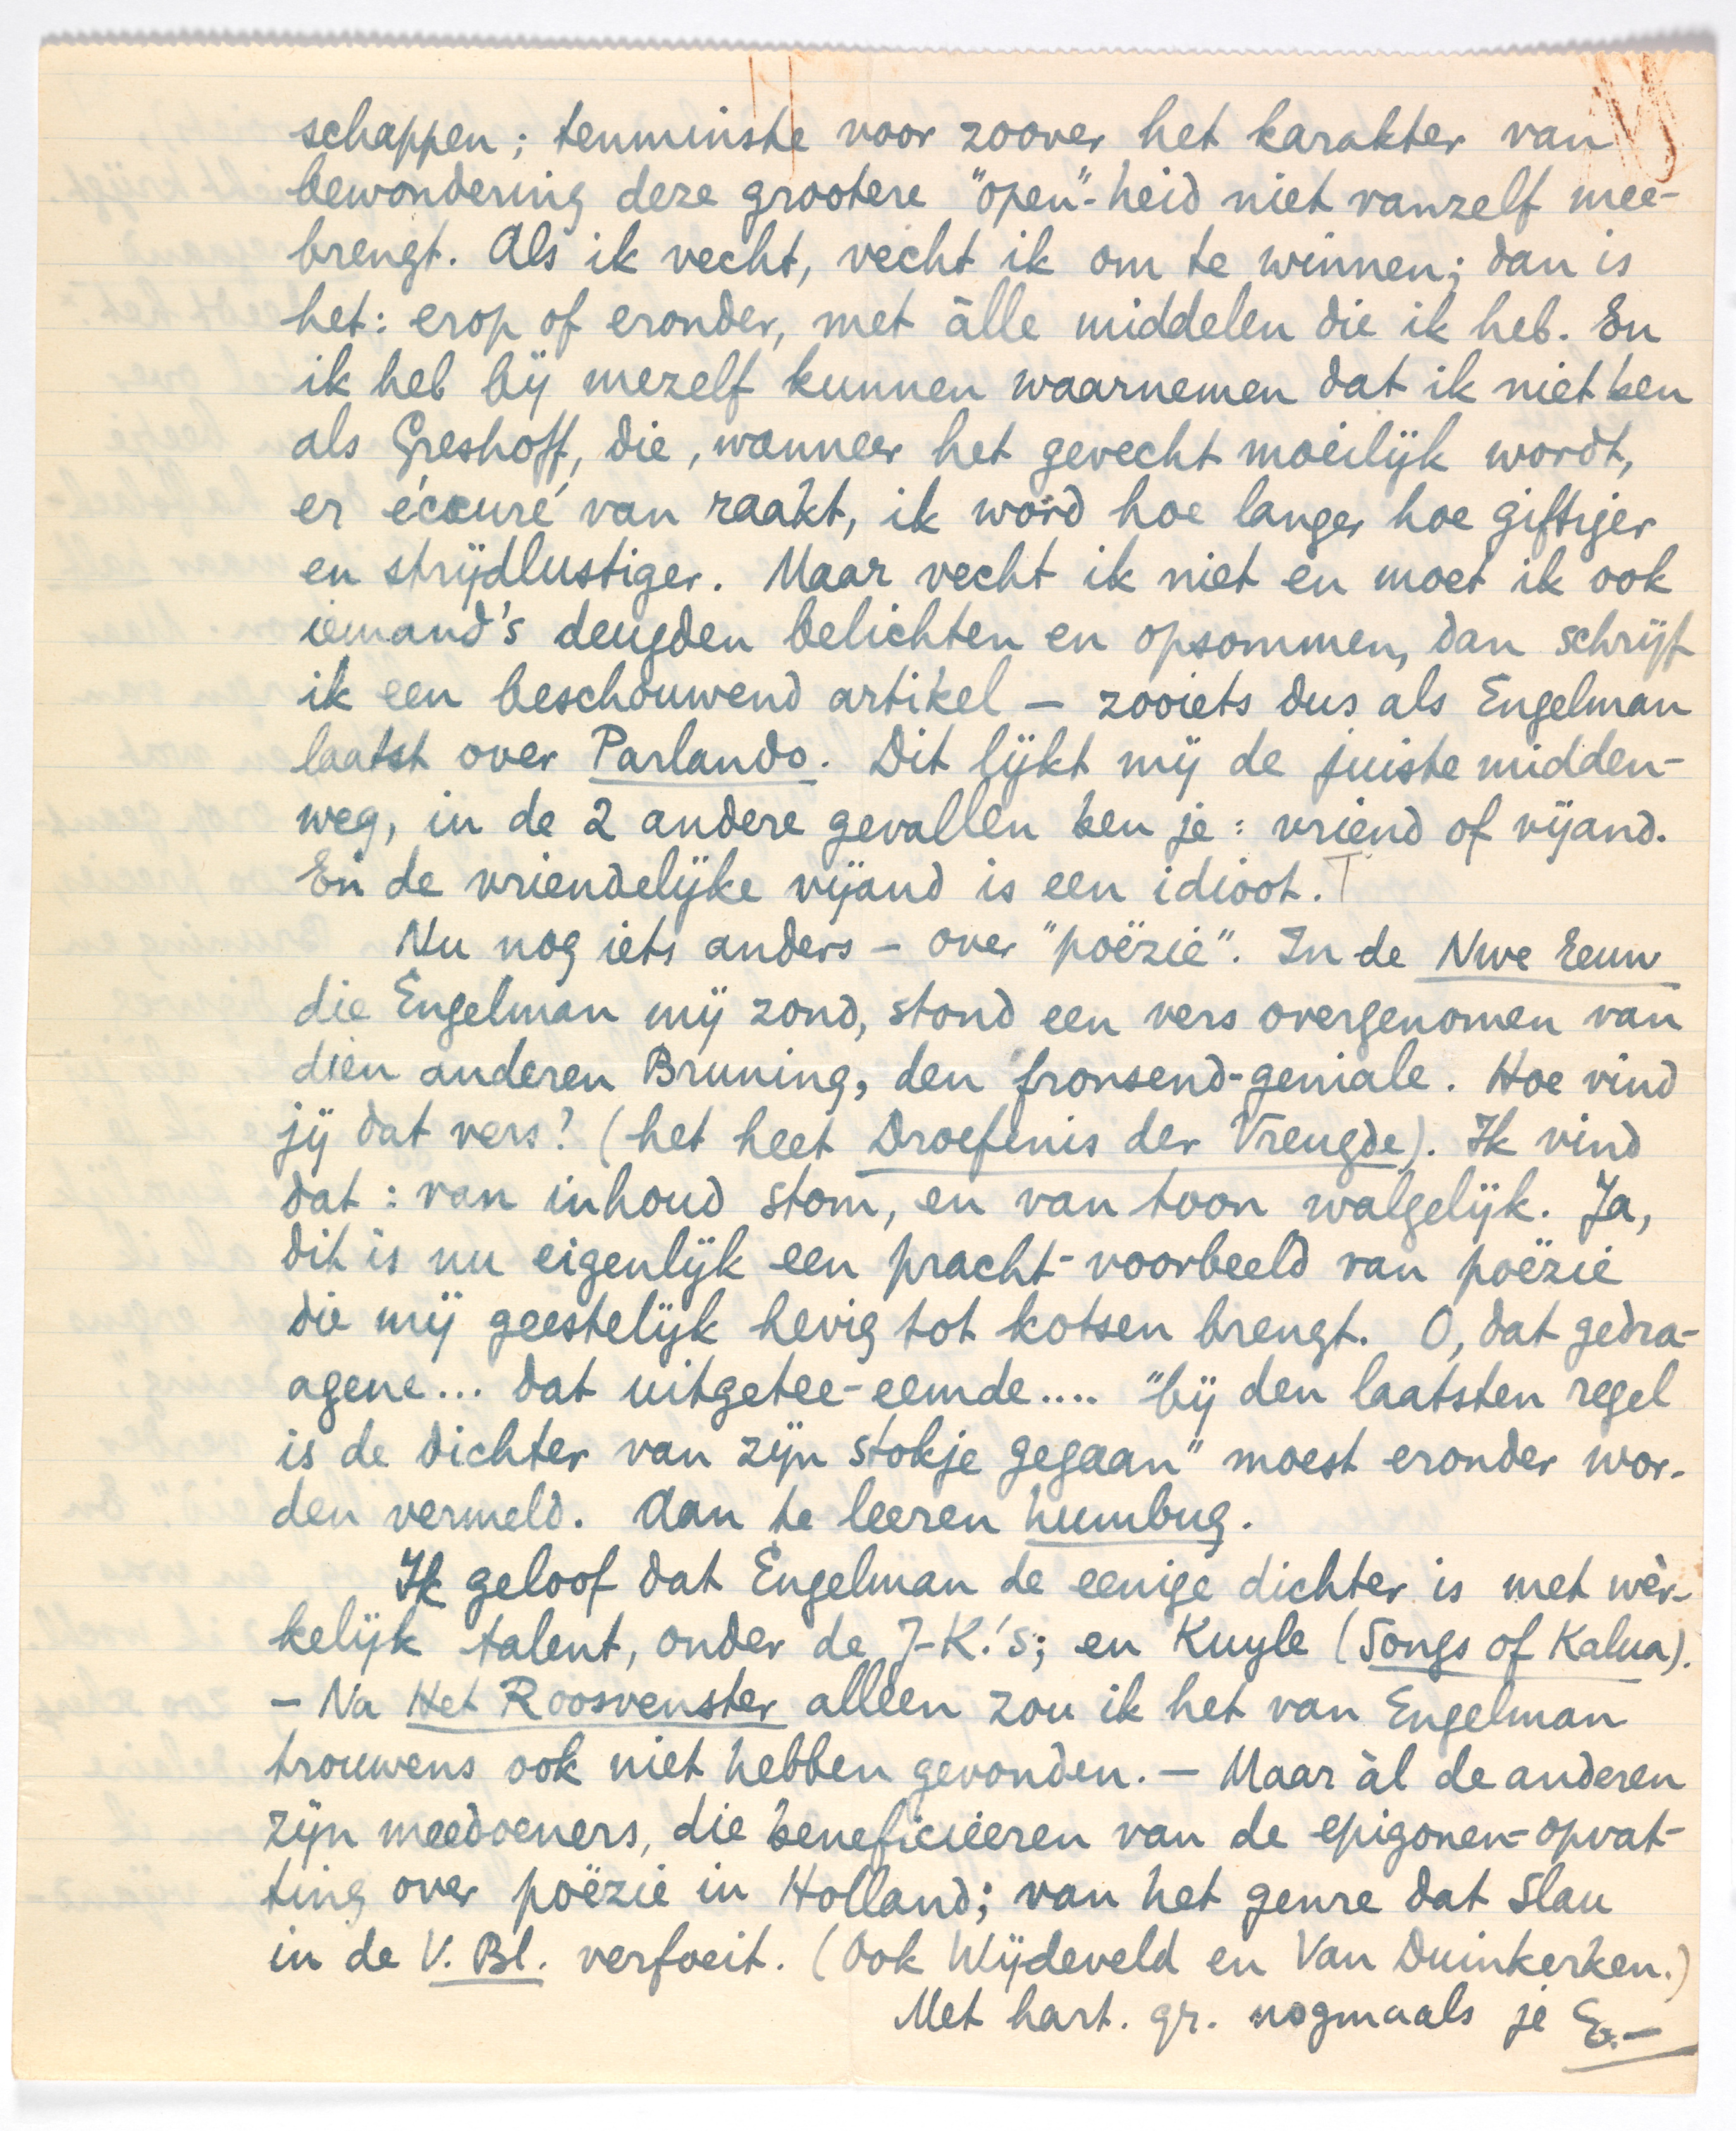 schappen; tenminste voor zoover het karakter van
bewondering deze grootere "open"-heid niet vanzelf mee-
brengt. Als ik vecht, vecht ik om te winnen; dan is
het: erop of eronder, met àlle middelen die ik heb. En
ik heb bij mezelf kunnen waarnemen dat ik niet ben
als Greshoff, die, wanneer het gevecht moeilijk wordt,
er écœuré van raakt, ik word hoe langer hoe giftiger
en strijdlustiger. Maar vecht ik niet en moet ik ook
iemand's deugden belichten en opsommen, dan schrijf
ik een beschouwend artikel – zooiets dus als Engelman
laatst over Parlando. Dit lijkt mij de juiste midden-
weg, in de 2 andere gevallen ben je: vriend of vijand.
En de vriendelijke vijand is een idioot. T
Nu nog iets anders – over "poëzie". In de Nwe Eeuw
die Engelman mij zond, stond een vers overgenomen van
dien anderen Bruning, den fronsend-geniale. Hoe vind
jij dat vers? (het heet Droefenis der Vreugde). Ik vind
dat: van inhoud stom, en van toon walgelijk. Ja,
dit is nu eigenlijk een pracht-voorbeeld van poëzie
die mij geestelijk hevig tot kotsen brengt. O, dat gedra-
agene... dat uitgetee-eemde.... "bij den laatsten regel
is de dichter van zijn stokje gegaan" moest eronder wor-
den vermeld. Aan te leeren humbug.
Ik geloof dat Engelman de eenige dichter is met wèr-
kelijk talent, onder de J-K.'s; en Kuyle (Songs of Kalua).
– Na Het Roosvenster alleen zou ik het van Engelman
trouwens ook niet hebben gevonden. – Maar àl de anderen
zijn meedoeners, die beneficieeren van de epigonen-opvat-
ting over poëzie in Holland; van het genre dat Slau
in de V. Bl. verfoeit. (Ook Wijdeveld en Van Duinkerken.)
Met hart. gr. nogmaals je E.–